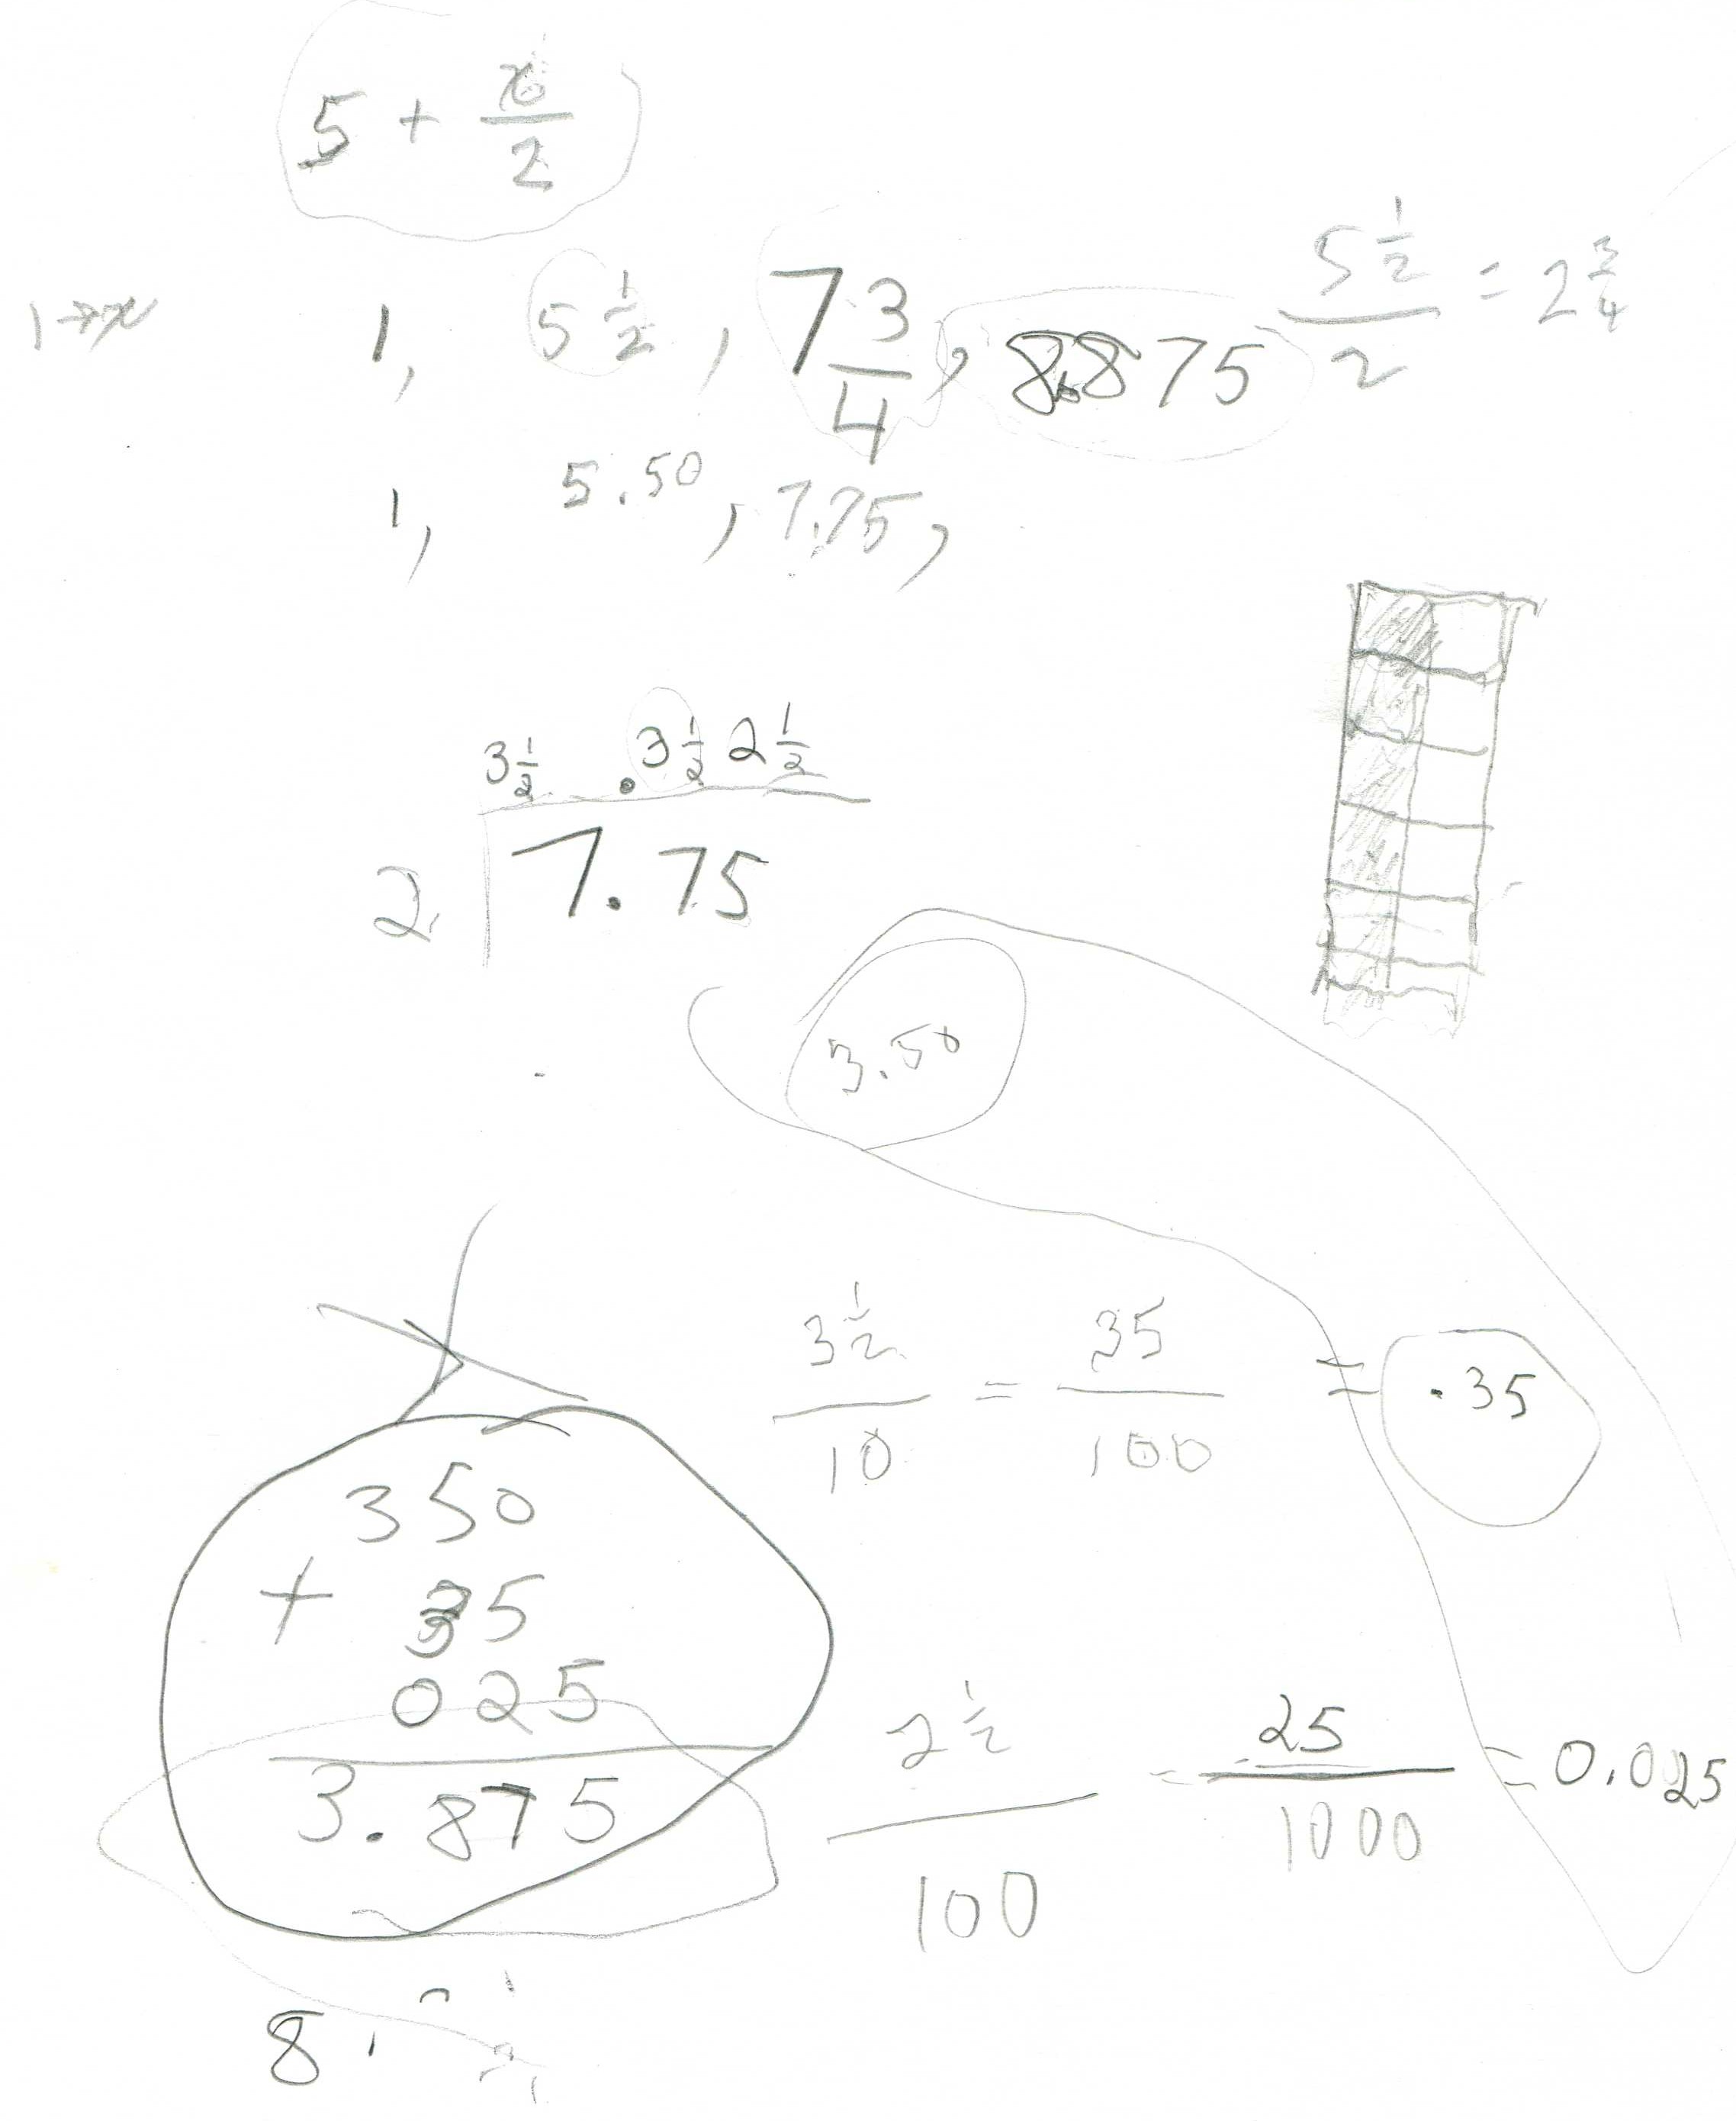 5 + x/2
1→x 1, 5 1/2, 7 3/4, 8.875
5 1/2 / 2 = 2 3/4
1, 5.50, 7.75,
3 1/2 . 3 1/2 2 1/2
2 7.75
3.50
3 1/2 / 10 = 35/100 = .35
350
+ 35
025
3.875
2 1/2 / 100 = 25/1000 = 0.025
8.